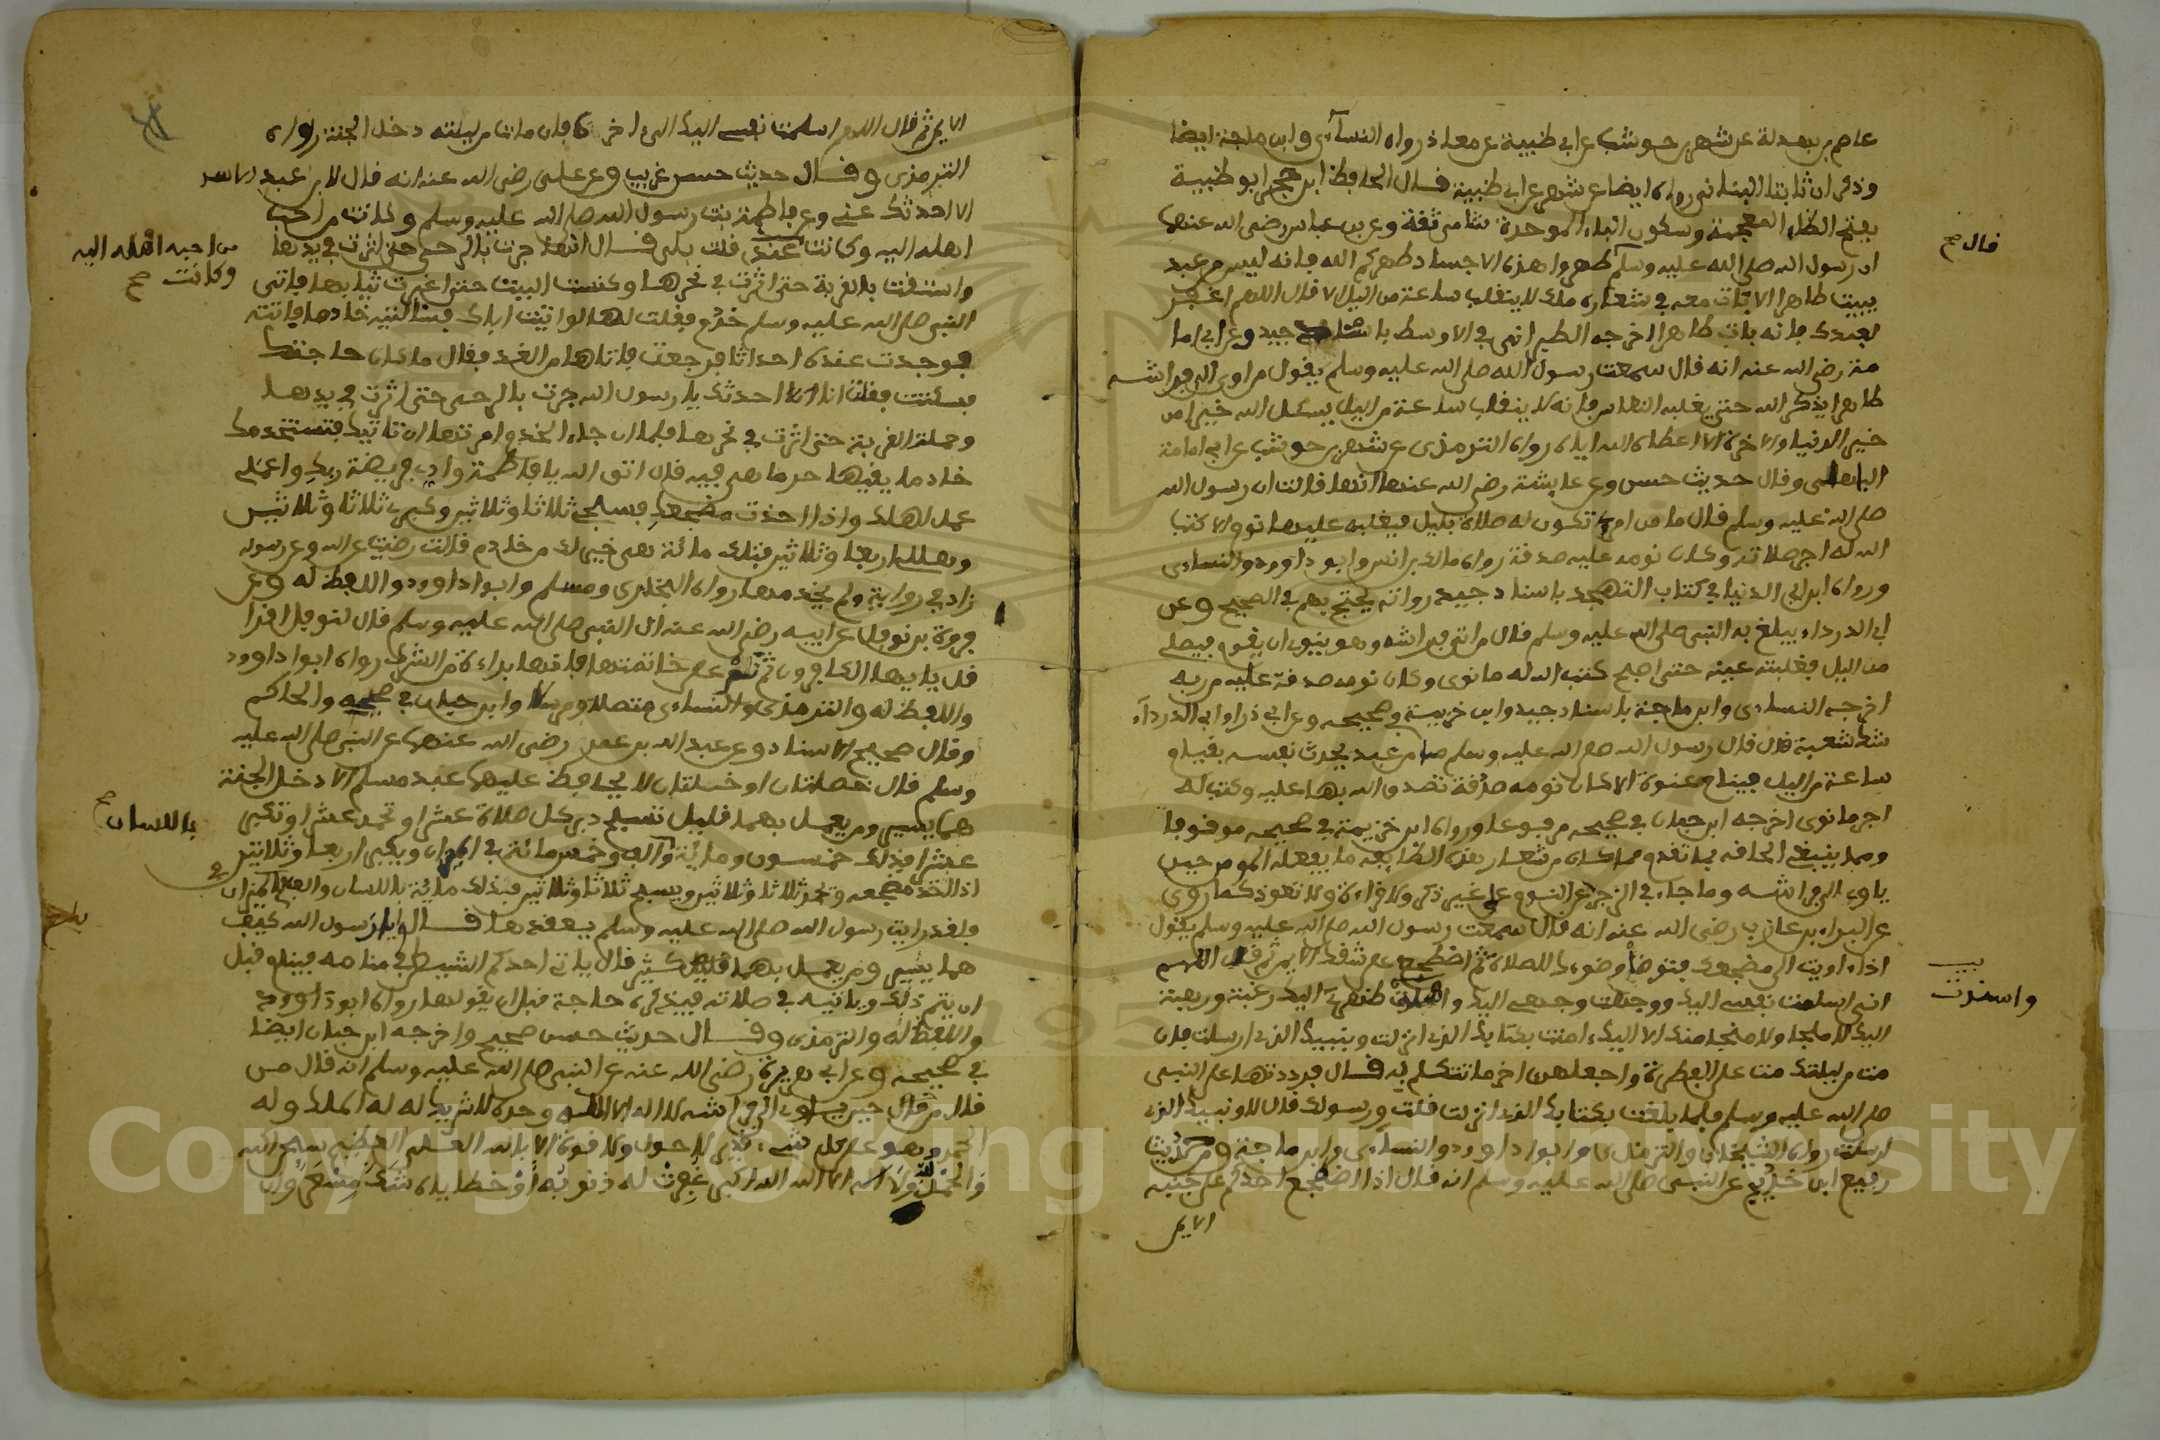 عاصم بن بهدلة عن شهر بن حوشب عن ابي ظبية عن معاذ رواه النسآءى وابن ماجة ايضا
وذكر ان ثابتا البنانى رواه ايضا عن شهر عن ابي ظبية فــال الحافظ ابن حجر ابو ظبية
بفتح الظاء المعجمة وسكون الباء الموحدة شامى ثقة وعن ابن عباس رضى الله عنهما
ان رسول الله صلى الله عليه وسلم قال طهروا هذه الاجساد طهركم الله فانه ليس من عبد
يبيت طاهرا الا بات معه في شعاره ملك لا ينقلب ساعة من اليل الا قال اللهم اغفر
لعبدك فانه بات طاهرا اخرجه الطبرانى في الاوسط باسناد جيد وعن ابي اما
مة رضى الله عنه انه قال سمعت رسول الله صلى الله عليه وسلم يقول من اوى الى فراشه
طاهرا يذكر الله حتى يغلبه النعاس فانه لا ينقلب ساعة من اليل يسئل الله خيرا من
خير الدنيا والاخرة الا اعطاه الله اياه رواه الترمذى عن شهر بن حوشب عن ابي امامة
الباهلى وقال حديث حسن وعن عايشة رضى الله عنها انها قالت ان رسول الله
صلى الله عليه وسلم قال ما من امرئ تكون له صلاة بليل فيغلبه عليها نوم الا كتب
الله له اجر صلاته وكان نومه عليه صدقة رواه مالك بن انس وابو داوود والنساءى
ورواه ابن ابي الدنيا في كتاب التهجد باسناد جيد رواته يحتج بهم في الصحيح وعن
ابي الدرداء يبلغ به النبى صلى الله عليه وسلم قال من اتى فراشه وهو ينوى ان يقوم فيصلى
من اليل فغلبته عينه حتى اصبح كتب الله له ما نوى وكان نومه صدقة عليه من ربه
اخرجه النساءى وابن ماجة باسناد جيد وابن خزيمة في صحيحه وعن ابي ذر او ابي الدرداء
شك شعبة قال قال رسول الله صلى الله عليه وسلم ما من عبد يحدث نفسه بقيام
ساعة من اليل فينام عنها الا كان نومه صدقة تصدق الله بها عليه وكتب له
اجر ما نوى اخرجه ابن حبان في صحيحه مرفوعا ورواه ابن خزيمة في صحيحه موقوفا
ومما ينبغى الحافه بما تقدم مما كان من شعار هذه الطايفة ما يفعله المومن حين
ياوى الى فراشه وما جاء في الزجر عن النوم على غير ذكر ولا قراءة ولا تعوذ كما روى
عن البراء بن عازب رضى الله عنه انه قال سمعت رسول الله صلى الله عليه وسلم يقول
اذا اويت الى مضجعك فتوضأ وضوءك للصلاة ثم اضطجع على شقك الايمن ثم قال اللهم
انى اسلمت نفسى اليك ووجهت وجهى اليك والجأت ظهرى اليك رغبة ورهبة
اليك لا ملجا ولا منجا منك الا اليك امنت بكتابك الذى انزلت ونبييك الذى ارسلت فان
مت من ليلتك مت على الفطرة واجعلهن اخر ما تتكلم به فــال فرددتها على النبى
صلى الله عليه وسلم فلما بلغت بكتابك الذى انزلت قلت ورسولك قال لا ونبييك الذى
ارسلت رواه الشيخان والترمذى وابوا داوود والنساءى وابن ماجة ومن حديث
رفيع ابن خديج عن النبى صلى الله عليه وسلم انه قال اذا اضطجع احدكم على جنبه
الايمن
قال صح
واسندت
الايمن ثم قال اللهم اسلمت نفسى اليك الى اخره فان مات من ليلته دخل الجنة رواه
الترمذى وفــال حديث حسن غريب وعن على رضى الله عنه انه قال لابن عبد
الا احدثك عنى وعن فاطمة بنت رسول الله صلى الله عليه وسلم وكانت من احب
اهله اليه وكانت عندى قلت بلى فــال انها جرت بالرحى حتى اثرت في يدها
واستقت بالقربة حتى اثرت في نحرها وكنست البيت حتى اغبرت ثيابها فاتى
النبى صلى الله عليه وسلم خدم فقلت لها لو اتيت اباك فسالتيه خادما فاتته
فوجدت عنده احداثا فرجعت فاتاها من الغد فقال ما كان حاجتك
فسكتت فقلت انا احدثك يا رسول الله جرت بالرحى حتى اثرت في يدها
وحملت القربة حتى اثرت في نحرها فلما ان جاء الخدم امرتها ان تاتيك فتستخدمك
خادما يقيها حر ما هى فيه قال اتق الله يا فاطمة وادى فريضة ربك واعملى
عمل اهلك واذا اخذت مضجعك فسبحى ثلاثا وثلاثين وكبرى ثلاثا وثلاثين
وهللى اربعا وثلاثين فتلك مائة هى خير لك من خادم قالت رضيت عن الله وعن رسوله
زاد في رواية ولم يخدمها رواه البخارى ومسلم وابوا داوود واللفظ له وعن
فروة بن نوفل عن ابيه رضى الله عنه ان النبى صلى الله عليه وسلم قال لنوفل اقرا
قل يا ايها الكافرون ثم نم على خاتمتها فانها براءة من الشرك رواه ابوا داوود
واللفظ له والترمذى والنساءى متصلا ومرسلا وابن حبان في صحيحه والحاكم
وقال صحيح الاسناد وعن عبد الله بن عمر رضى الله عنهما عن النبى صلى الله عليه
وسلم قال خصلتان او خلتان لا يحافظ عليهما عبد مسلم الا دخل الجنة
هما يسير ومن يعمل بهما قليل تسبح دبر كل صلاة عشرا وتحمد عشرا وتكبر
عشرا فذلك خمسون ومائة والف وخمس مائة في الميزان ويكبر اربعا وثلاثين
اذا اخذ مضجعه ويحمد ثلاثا وثلاثين ويسبح ثلاثا وثلاثين فبذلك مائة باللسان والف في الميزان
فلقد رايت رسول الله صلى الله عليه وسلم يعقدها فــالوا يا رسول الله كيف
هما يسير ومن يعمل بهما قليل قال ياتى احدكم الشيطان في منامه فينام قبل
ان يتم ذلك وياتيه في صلاته فيذكره حاجة قبل ان يقولها رواه ابو داوود
واللفظ له والترمذى وفــال حديث حسن صحيح واخرجه ابن حبان ايضا
في صحيحه وعن ابي هريرة رضى الله عنه عن النبى صلى الله عليه وسلم انه قال من
قال حين ياوى الى فراشه لا اله الا الله وحده لا شريك له له الملك وله
الحمد وهو على كل شىء قدير لا حول ولا قوة الا بالله العلى العظيم سبحن الله
والحمد لله ولا اله الا الله والله اكبر غفرت له ذنوبه او خطاياه شك مسعر وان
من احب اهله اليه
وكانت صح
باللسان صح
Copyright © King Saud University
1957